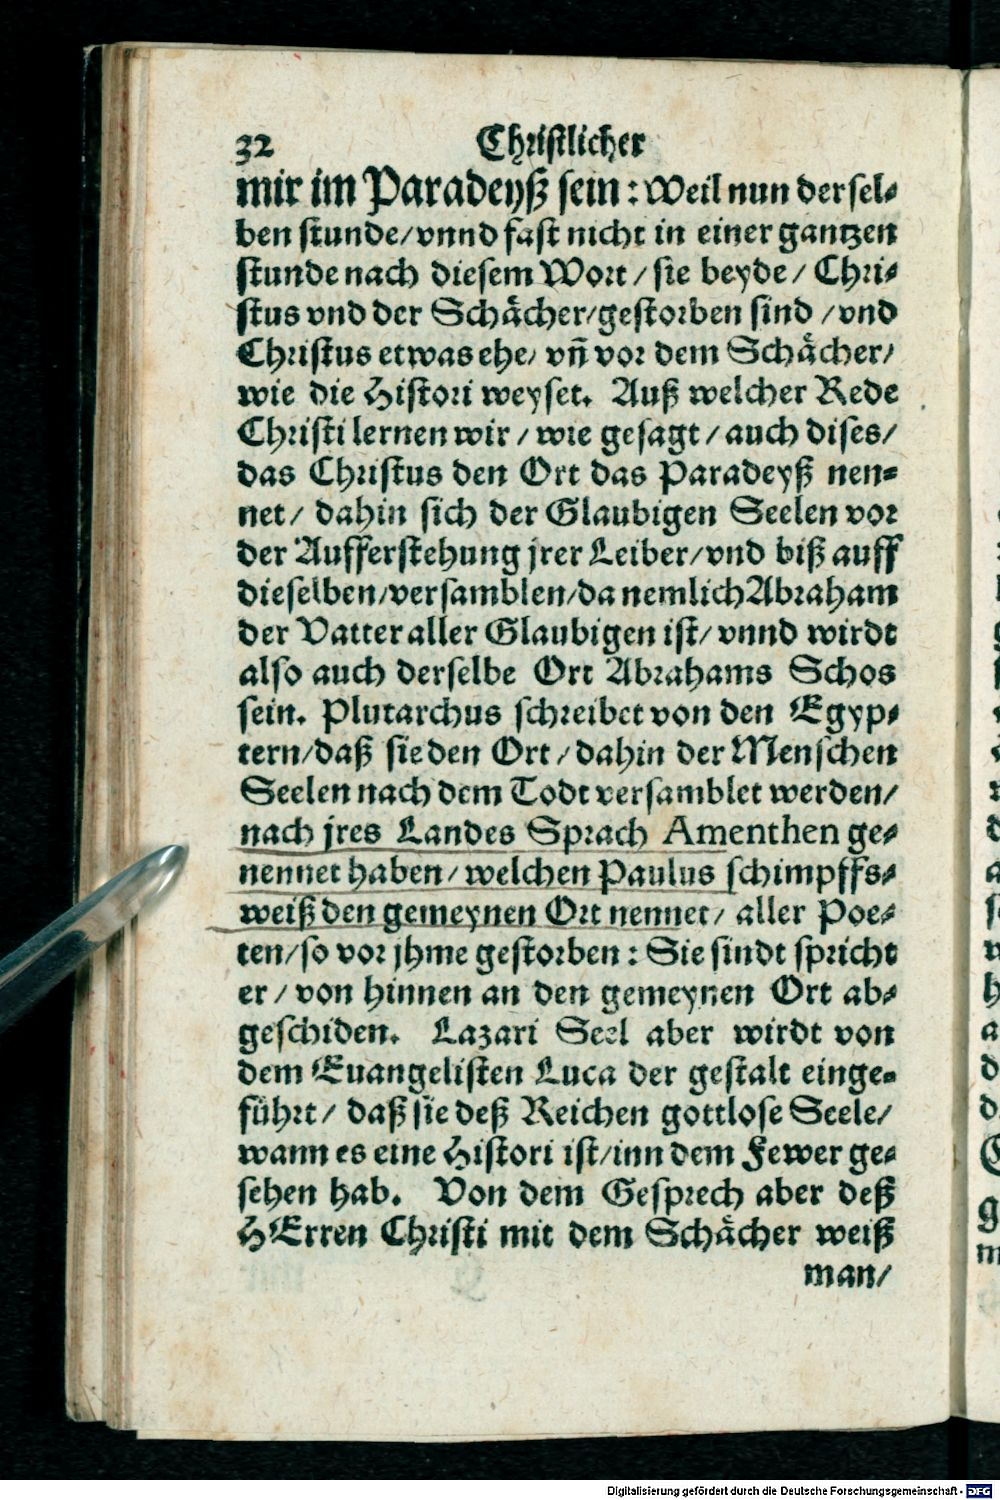 32 Christlicher
mir im Paradeyß sein: Weil nun dersel-
ben stunde/vnnd fast nicht in einer gantzen
stunde nach diesem Wort/sie beyde/Chri-
stus vnd der Schächer/gestorben sind/vnd
Christus etwas ehe/vñ vor dem Schächer/
wie die Histori weyset. Auß welcher Rede
Christi lernen wir/wie gesagt/auch dises/
das Christus den Ort das Paradeyß nen-
net/dahin sich der Glaubigen Seelen vor
der Aufferstehung jrer Leiber/vnd biß auff
dieselben/versamblen/da nemlich Abraham
der Vatter aller Glaubigen ist/vnnd wirdt
also auch derselbe Ort Abrahams Schos
sein. Plutarchus schreibet von den Egyp-
tern/daß sie den Ort/dahin der Menschen
Seelen nach dem Todt versamblet werden/
nach jres Landes Sprach Amenthen ge-
nennet haben/welchen Paulus schimpffs-
weiß den gemeynen Ort nennet/aller Poe-
ten/so vor jhme gestorben: Sie sindt spricht
er/von hinnen an den gemeynen Ort ab-
geschiden. Lazari Seel aber wirdt von
dem Euangelisten Luca der gestalt einge-
führt/daß sie deß Reichen gottlose Seele/
wann es eine Histori ist/inn dem Fewer ge-
sehen hab. Von dem Gesprech aber deß
HErren Christi mit dem Schächer weiß
man/
Digitalisierung gefördert durch die Deutsche Forschungsgemeinschaft - DFG